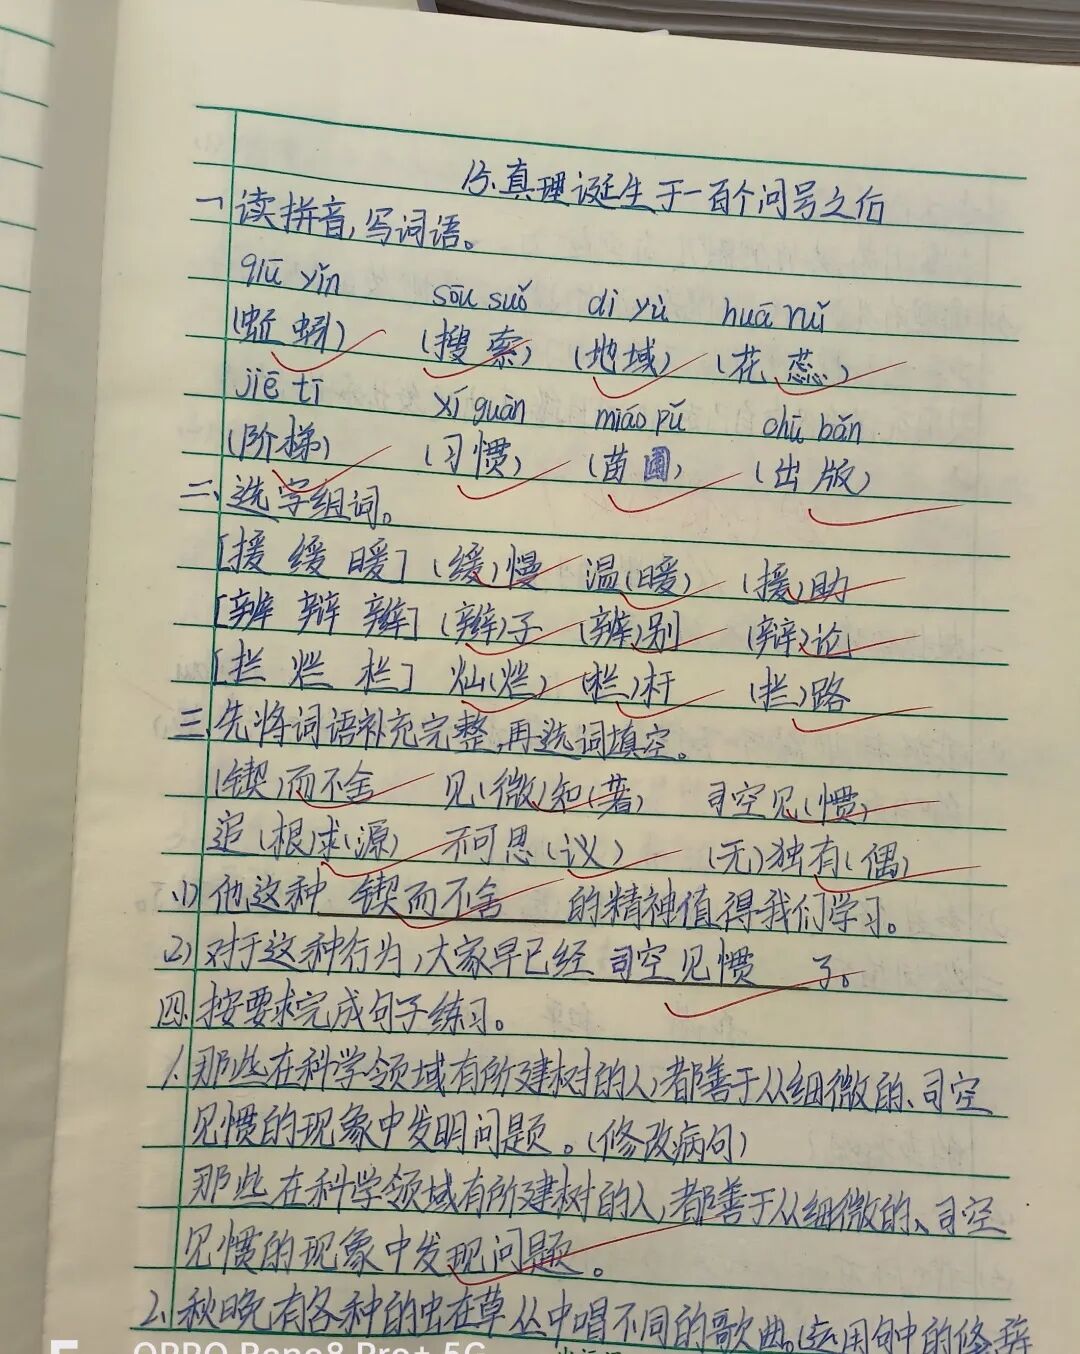 15.真理诞生于一百个问号之后
一、读拼音,写词语。
qiū yǐn sōu suǒ dì yù huā ruǐ
(蚯蚓) (搜索) (地域) (花蕊)
jiē tī xí guàn miáo pǔ chū bǎn
(阶梯) (习惯) (苗圃) (出版)
二、选字组词。
[援 缓 暖] (缓)慢 温(暖) (援)助
[辨 辩 辫] (辫)子 (辨)别 (辩)论
[拦 烂 栏] 灿(烂) (栏)杆 (拦)路
三、先将词语补充完整,再选词填空。
(锲)而不舍 见(微)知(著) 司空见(惯)
追(根)求(源) 不可思(议) (无)独有(偶)
(1)他这种 锲而不舍 的精神值得我们学习。
(2)对于这种行为,大家早已经 司空见惯 了。
四、按要求完成句子练习。
1.那些在科学领域有所建树的人,都善于从细微的、司空
见惯的现象中发明问题。(修改病句)
那些在科学领域有所建树的人,都善于从细微的、司空
见惯的现象中发现问题。
2.秋晚,有各种的虫在草丛中唱不同的歌曲。(运用句中的修辞